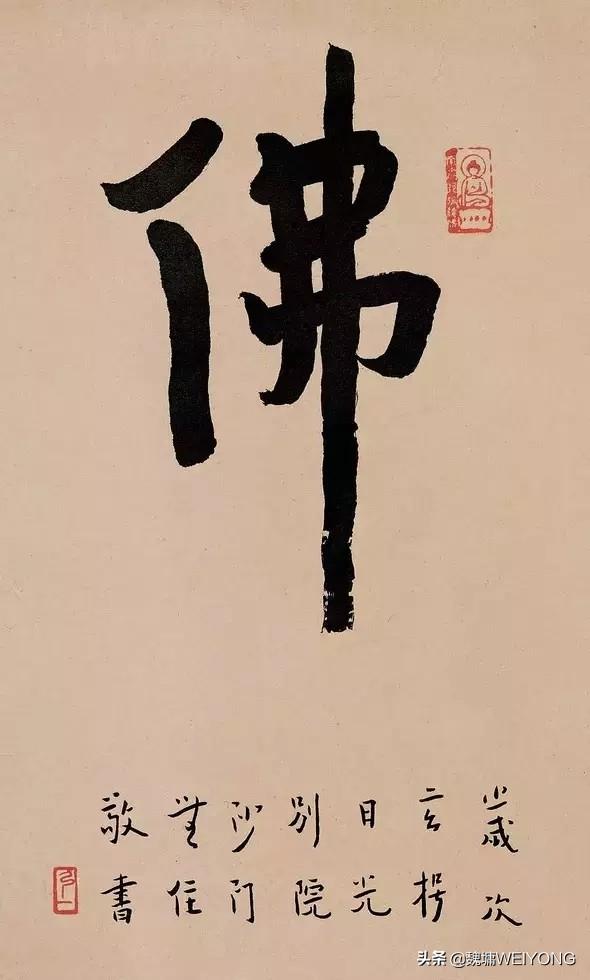 佛
歲次
玄枵
日光
別院
沙門
無住
敬書
弘一
头条 @魏墉WEIYONG